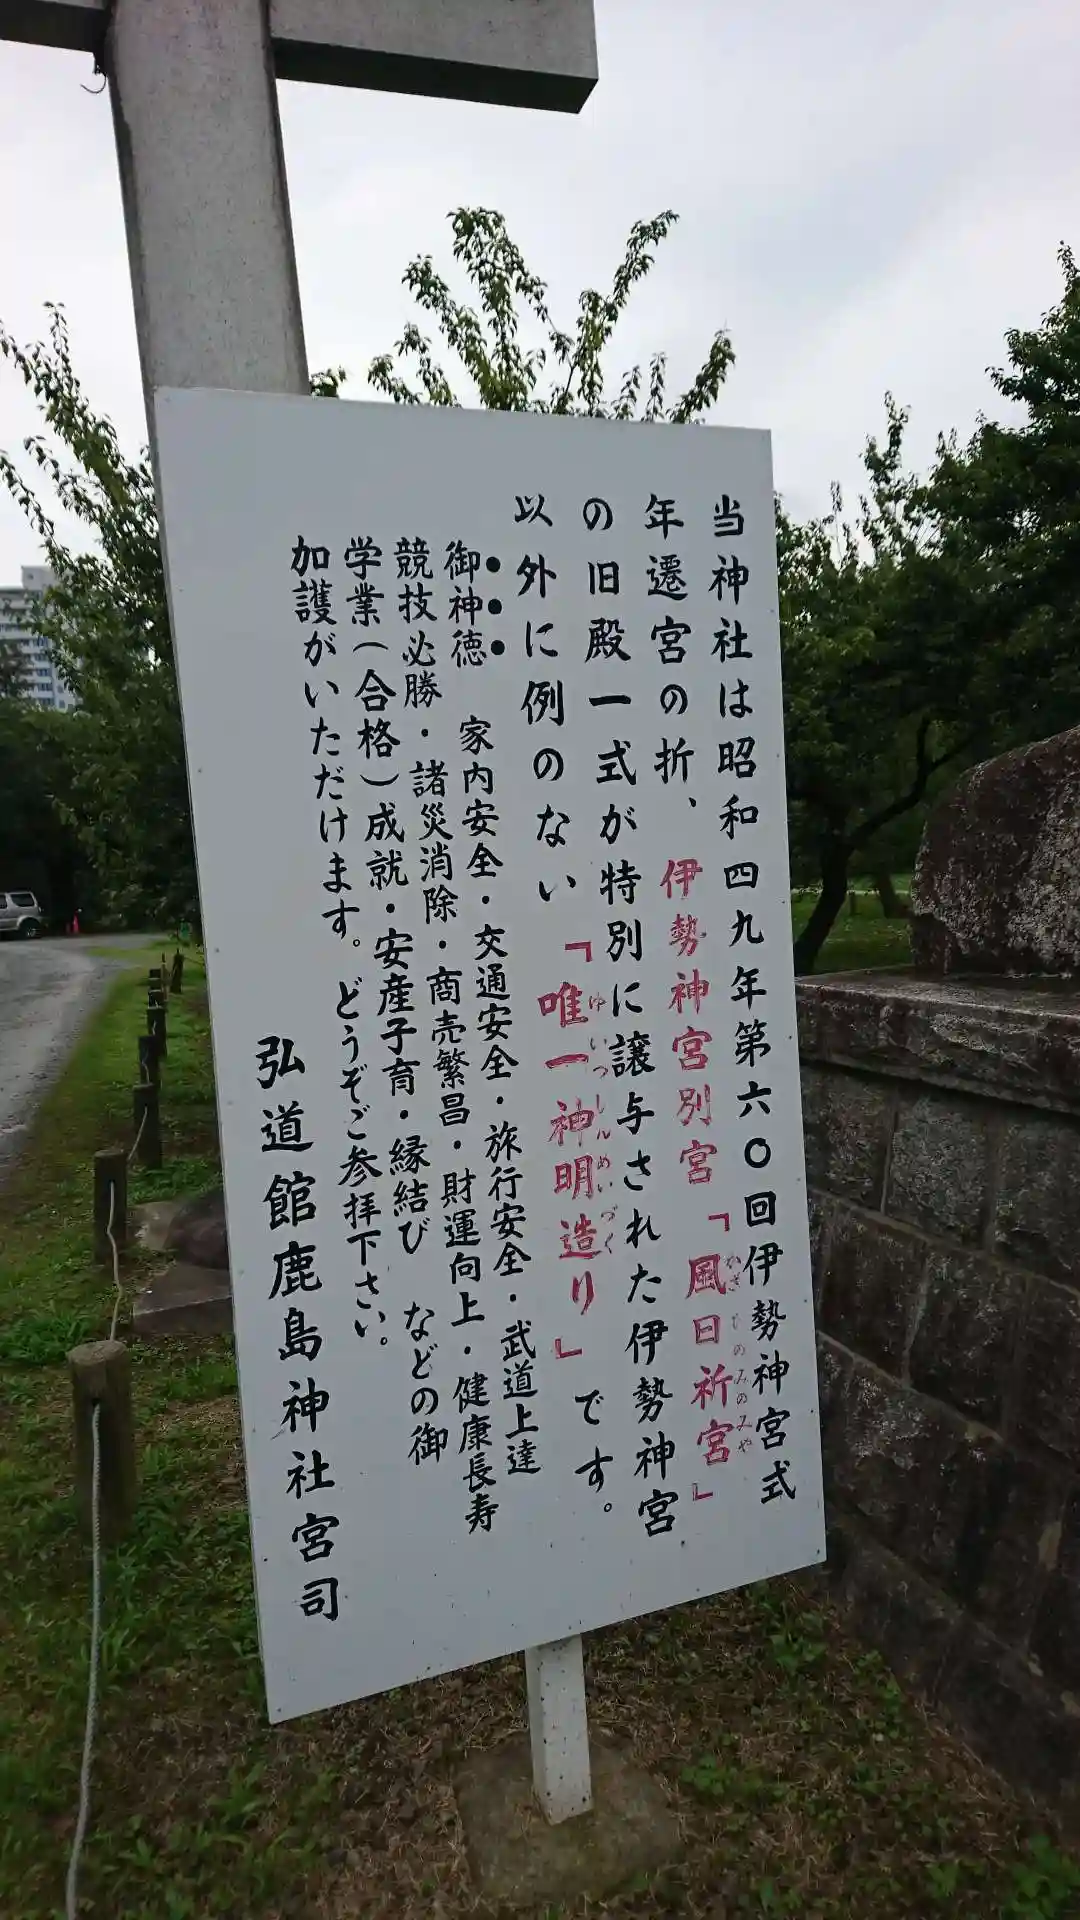 当神社は昭和四九年第六〇回伊勢神宮式
年遷宮の折、伊勢神宮別宮「風日祈宮」
かざひのみのみや
の旧殿一式が特別に譲与された伊勢神宮
以外に例のない「唯一神明造り」です。
ゆいつしんめいづく
御神徳 家内安全・交通安全・旅行安全・武道上達
競技必勝・諸災消除・商売繁昌・財運向上・健康長寿
学業(合格)成就・安産子育・縁結び などの御
加護がいただけます。どうぞご参拝下さい。
弘道館鹿島神社宮司